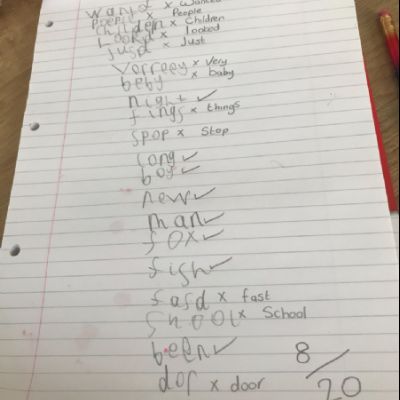 wantd x Wanted
x People
children x Children
Lookd x Looked
Jusd x Just
Verreey x Very
beby x baby
night ✓
fings x things
spop x Stop
long ✓
boy ✓
new ✓
man ✓
fox ✓
fish ✓
fasd x fast
Shool x School
been ✓
dor x door
8/20